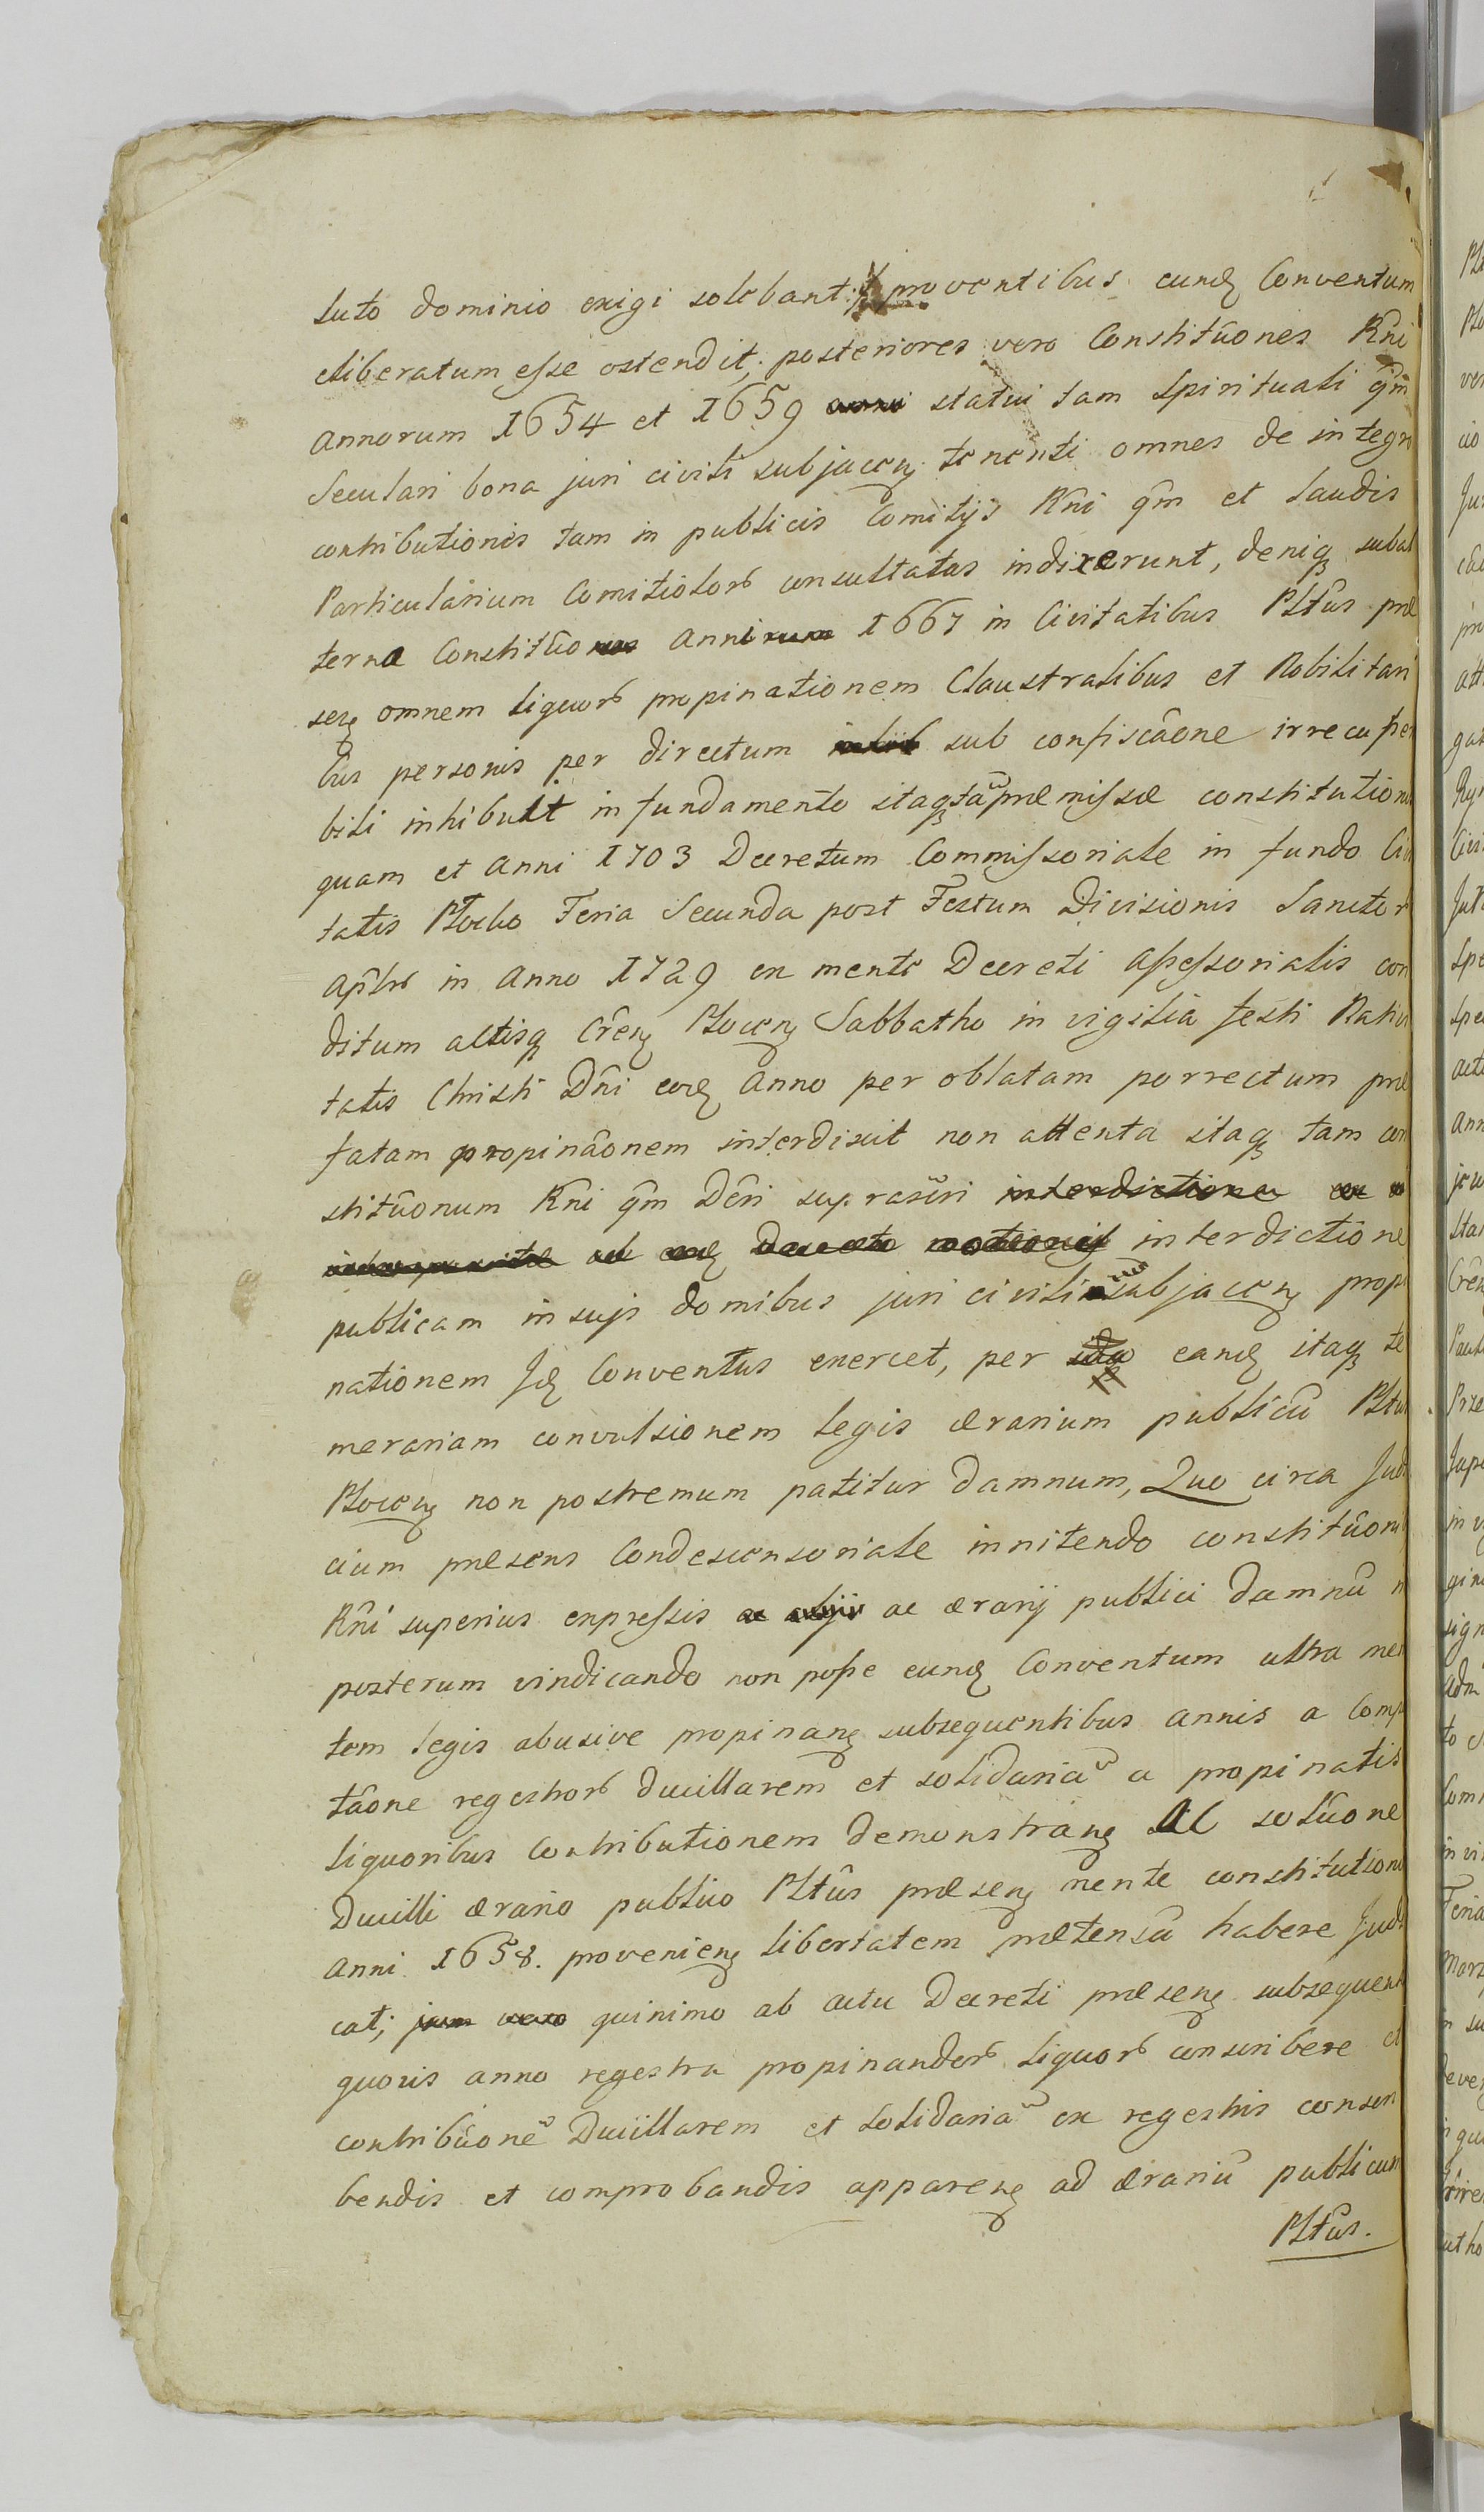 luto dominio exigi solebant proventibus eund Conventum
eliberatum esse ostendit, posteriores vero Constitūones Rñi
Annorum 1654 et 1659 statui tam Spirituali qm̃
Seculari bona juri civili subjacen tenenti omnes de integro
contributiones tam in publicis Comitijs Rñi qm̃ et Laudis
Particularium Comitiolor consultatas indixerunt, deniq subal
terna Constitũo anni 1667 in Civitatibus Pltũs præ
sen omnem liquor propinationem Claustralibus et Nobilitari
bus personis per directum sub confiscãone irrecuper
bili inhibuit in fundamento itaq tã præmissæ constitution
quam et Anni 1703 Decretum Commissoriale in fundo Civi
tatis Plocko Feria Secunda post Festum Divisionis Sanctor
Aplor in Anno 1729 ex mente Decreti Assessorialis con
ditum actisq Cren Plocen Sabbatho in vigilia festi Nativi
tatis Christi Dñi eod Anno per oblatam porrectum præ
fatam propinãonem interdixit non attenta itaq tam con
stitũonum Rñi qm̃ Dcri suprascri interdictione
interdictione
publicam in suis domibus juri civili subjacen propi
nationem Id Conventus exercet, per eand itaq te
merariam convulsionem legis ærarium publicũ Pltũs
Plocen non postremum patitur damnum, Quo circa Judi
cium præsens Condescensoriale innitendo constitũoni
Rñi superius expressis ac ærarij publici damnũ in
posterum vindicando non posse eund Conventum ultra men
tem legis abusive propinan subsequentibus annis a Compu
tãone regestror Ducillarem et solidariã a propinatis
liquoribus Contributionem demonstran Ac solũone
Ducilli ærario publico Pltũs præsen mente constitution
Anni 1658. provenien libertatem prætensã habere Judi
cat; quinimo ab actu Decreti præsen subsequent
quovis anno regestra propinandor liquor conscribere et
contribũonẽ Ducillarem et solidariã ex regestris conscri
bendis et comprobandis apparen ad ærariũ publicum
Pltũs.